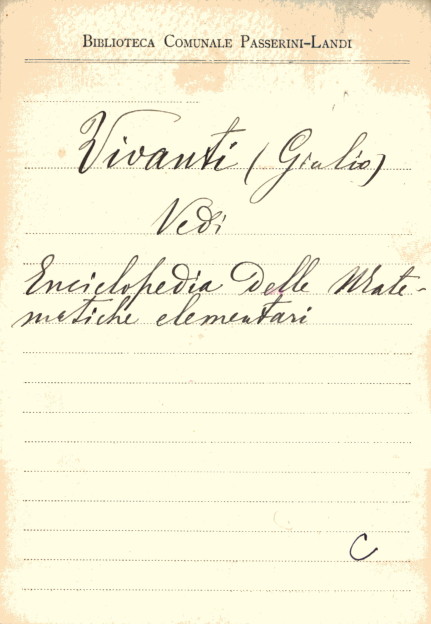 BIBLIOTECA COMUNALE PASSERINI-LANDI
Vivanti (Giulio)
Vedi
Enciclopedia delle Mate-
matiche elementari
C